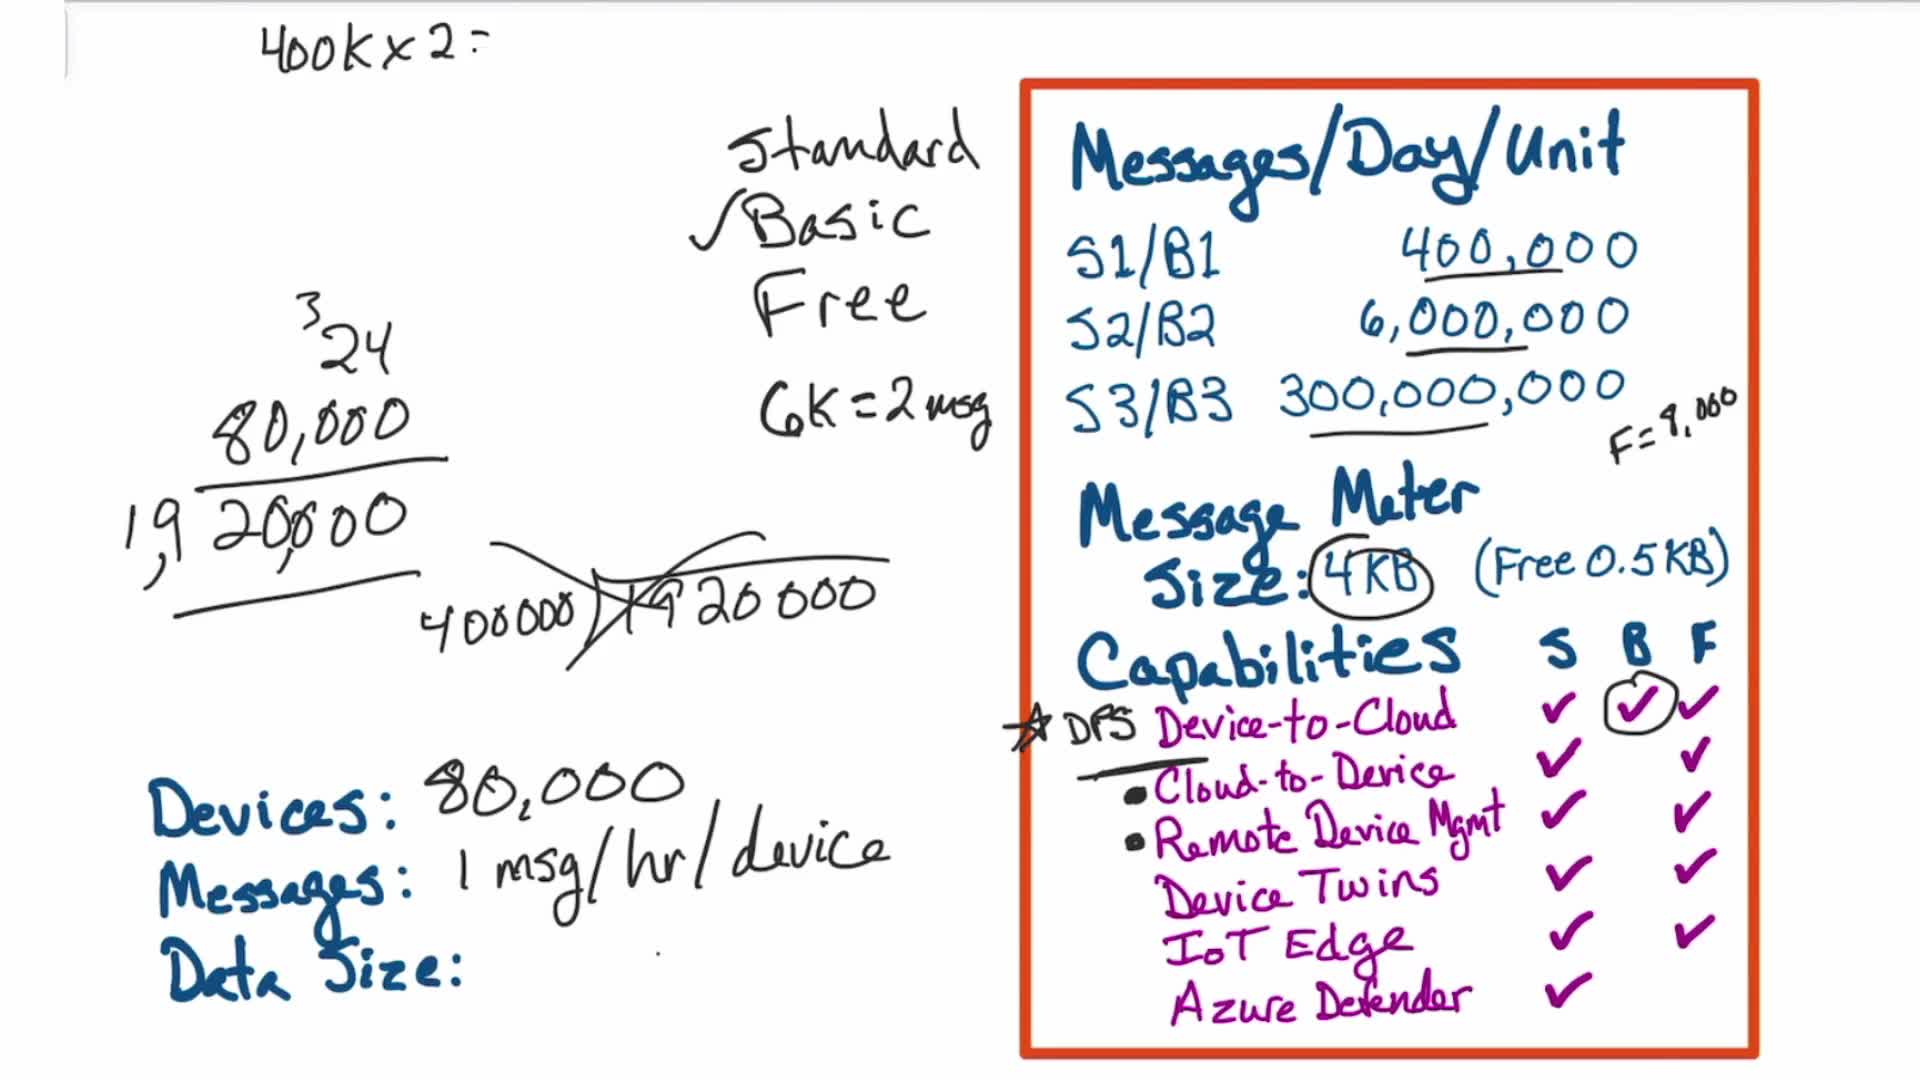 400K x 2 =
Standard
✓Basic
Free
6K = 2 msg
3
24
80,000
1,920,000
400000 1920000
Devices: 80,000
Messages: 1 msg/hr/device
Data Size:
Messages/Day/Unit
S1/B1 400,000
S2/B2 6,000,000
S3/B3 300,000,000
F=8,000
Message Meter
Size: 4KB (Free 0.5KB)
Capabilities S B F
★ DPS Device-to-Cloud ✓ ✓ ✓
• Cloud-to-Device ✓ ✓
• Remote Device Mgmt ✓ ✓
Device Twins ✓ ✓
IoT Edge ✓ ✓
Azure Defender ✓